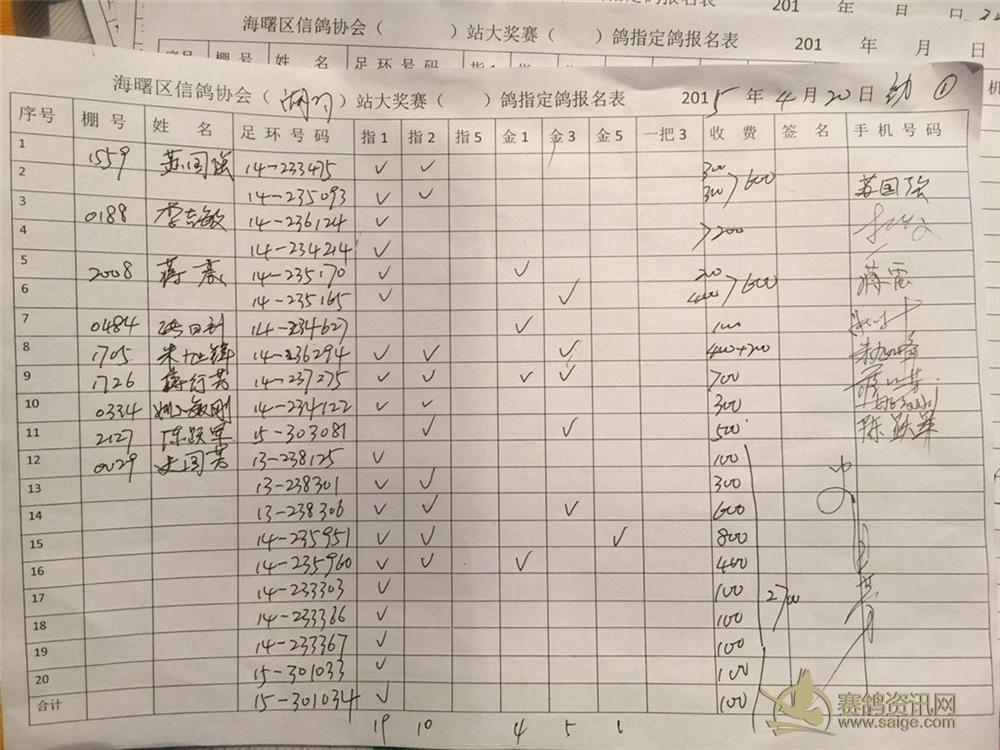 海曙区信鸽协会（ ）站大奖赛（ ）鸽指定鸽报名表 201 年 月 日
海曙区信鸽协会（湖州）站大奖赛（ ）鸽指定鸽报名表 2015 年 4 月 20 日 幼 ①
序号 棚号 姓名 足环号码 指1 指2 指5 金1 金3 金5 一把3 收费 签名 手机号码
1 1559 苏国强 14-233475 ✓ ✓ 300
2 14-235093 ✓ ✓ 300 >600 苏国强
3 0188 李志敏 14-236124 ✓
4 14-234214 ✓ >200
5 2008 蒋 14-235170 ✓ ✓ 200
6 14-235165 ✓ ✓ 400 >600 蒋
7 0484 14-234627 ✓ 100
8 1705 朱旭锋 14-236294 ✓ ✓ ✓ 400+200
9 1726 蒋行芳 14-237275 ✓ ✓ ✓ ✓ 700
10 0334 姚敏刚 14-234122 ✓ ✓ 300
11 2127 陈跃军 15-303081 ✓ ✓ 500 陈跃军
12 0029 史国芳 13-238125 ✓ 100
13 13-238301 ✓ ✓ 300
14 13-238306 ✓ ✓ ✓ 600
15 14-235951 ✓ ✓ ✓ 800
16 14-235960 ✓ ✓ ✓ 400
17 14-233303 ✓ 100 2700
18 14-233366 ✓ 100
19 14-233367 ✓ 100
20 15-301033 ✓ 100
合计 15-301034 ✓ 100
19 10 4 5 1
赛鸽资讯网
www.saige.com